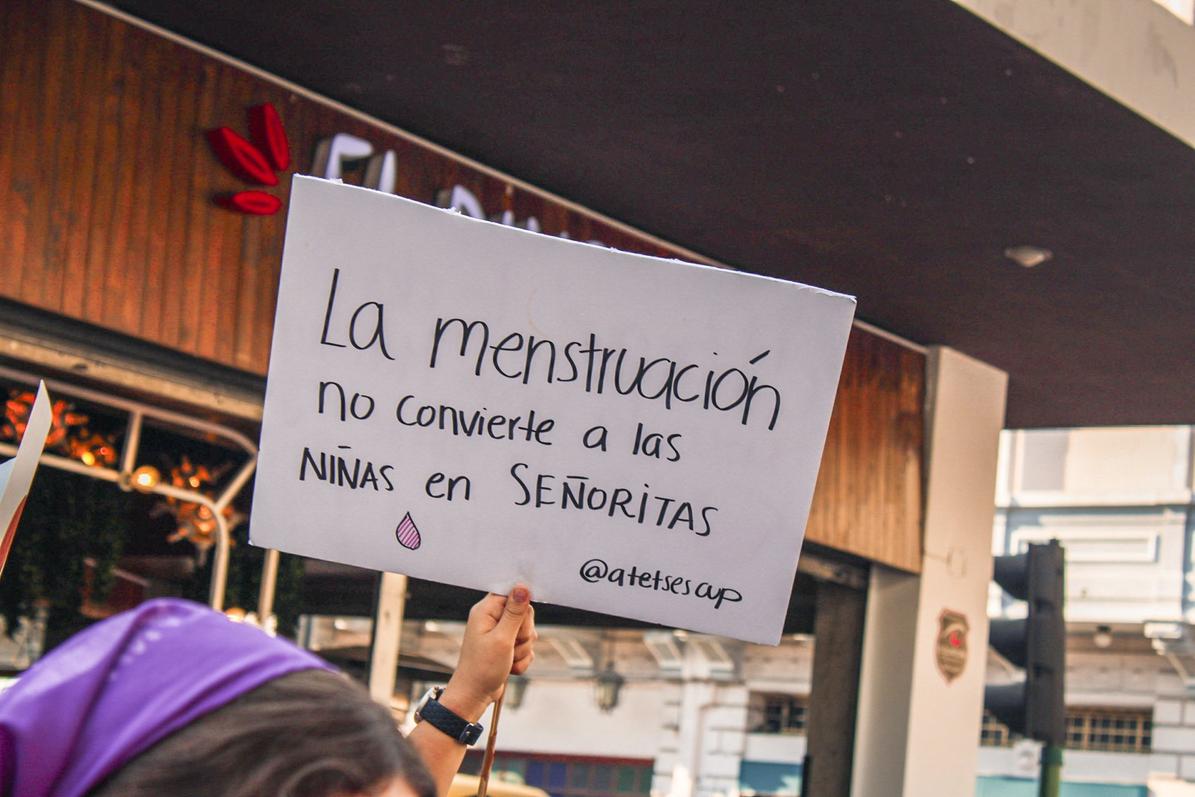 EL
La menstruación
no convierte a las
NIÑAS en SEÑORITAS
@atetsescup